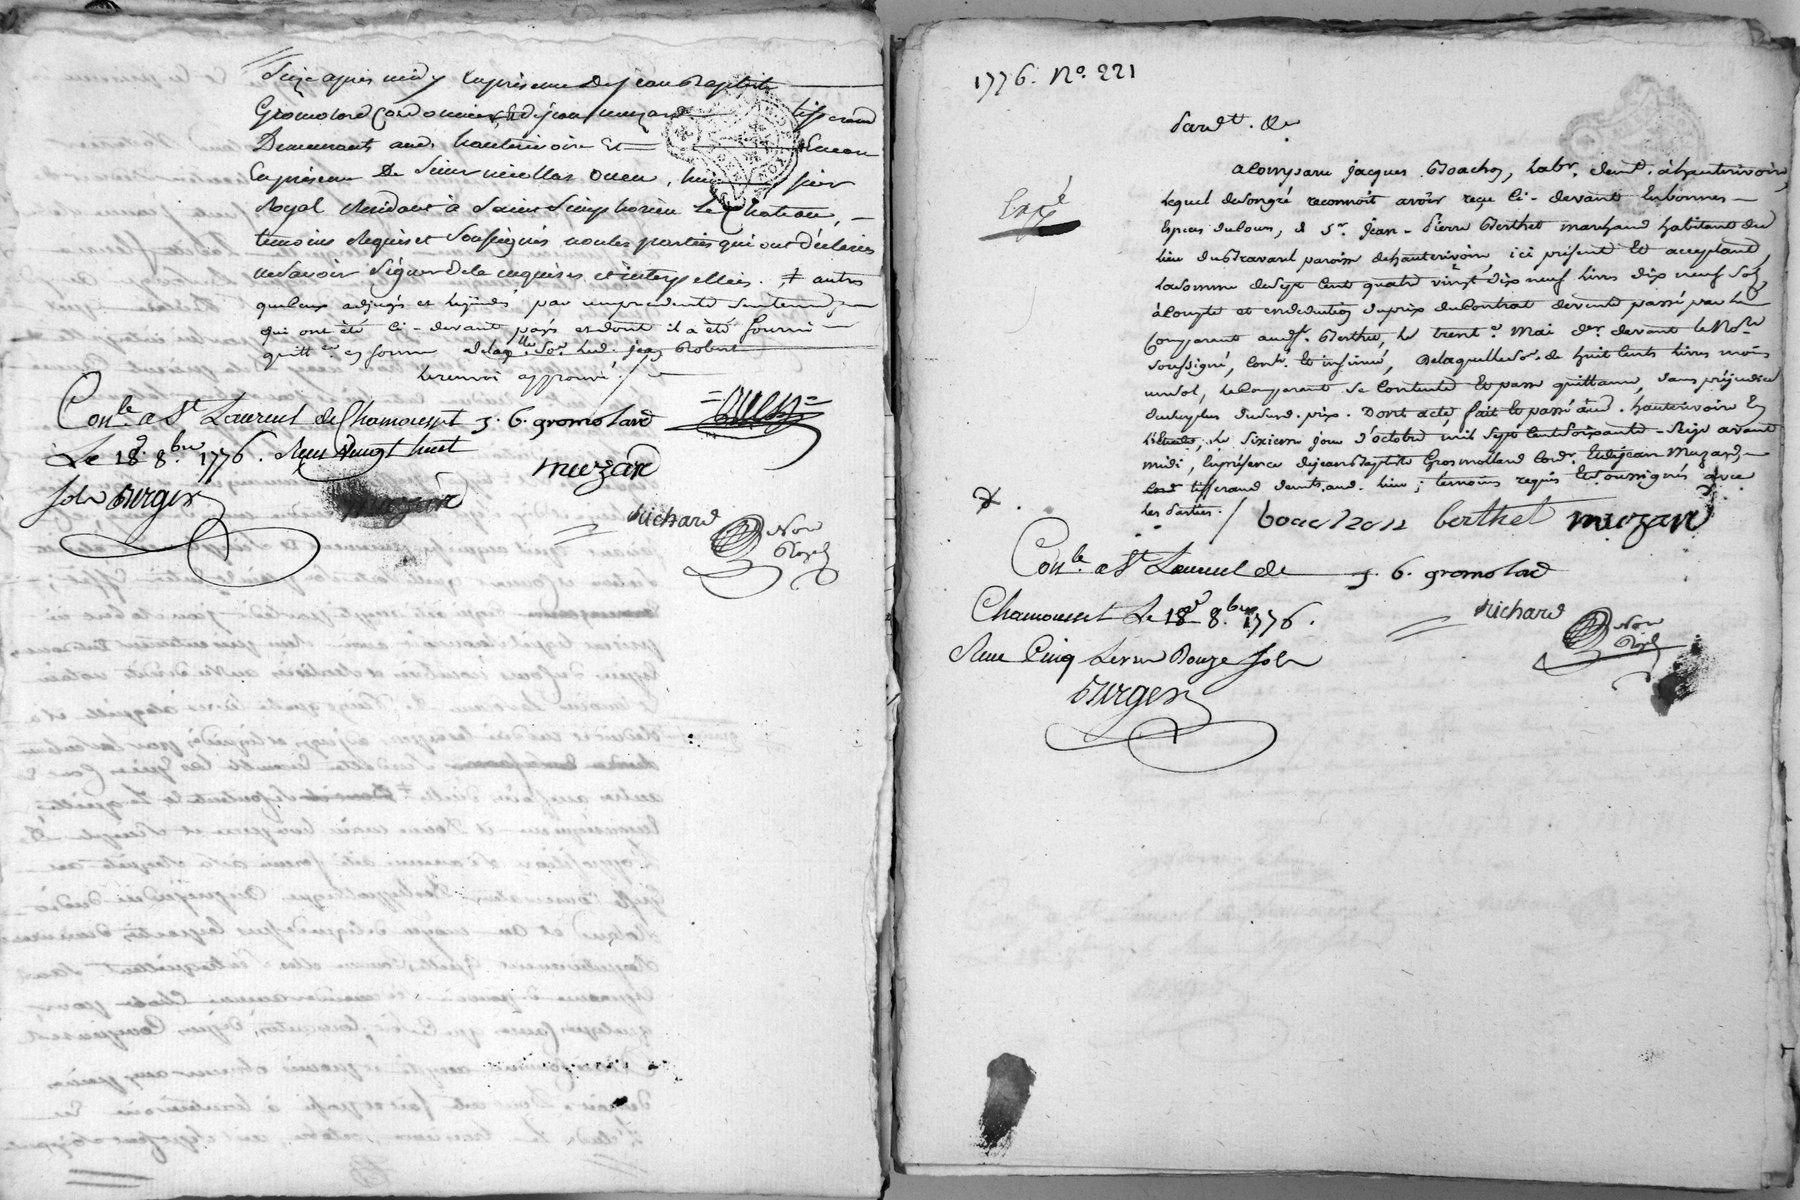 Seize après midy En présence de jean Baptiste
Gromolard Cordonnier, & de jean muzard tisserand
Demeurants aud. hauterivoire Et Encore
En présence De Sieur nicollas ouen, huissier
Royal Résidant à Saint Simphorien Le Chateau,
temoins Requis et Soussignés non les parties qui ont déclarés
ne Savoir Signer de ce enquises et interpellées. ‡ autres
que ceux adjugés et liquidés par une precedente Sentence
qui ont été ci-devant payés et dont il a été fourni
quitt.ce en forme de laq.lle So.e led. jean Robert
Le renvoi approuvé./
Con.lé a St Laurent de Chamousset J. B. gromolard ouen
Le 18.e 8.bre 1776. Reçu Vingt huit
Sols Burger muzard muzard
Richard Not.re Royal
1776. N.o 221
Pard.t &c
Exp.é
a Comparu jacques Boachon, Lab.r dem.t à hauterivoire,
Lequel de Son gré reconnoit avoir reçu Ci-devant En bonnes
Espèces du Cours, de S.r Jean-Pierre Berthet marchand habitant du
lieu du Bravard paroisse de hauterivoire ici présent Et acceptant
la Somme de Sept Cent quatre vingt dix neuf livres dix neuf Sols
à Compte et en déduction du prix du Contrat de vente passé par le
Comparant aud.t Berthet, le trente Mai d.er devant le No.re
Soussigné, Con.lé Et insinué, De laquelle So.e de huit Cents livres moins
un Sol, le Comparant Se Contente Et passe quittance, Sans préjudice
du Surplus dud. prix. Dont acte, fait Et passé aud. hauterivoire En
l'étude, Le Sixieme Jour d'octobre mil Sept Cent Soixante-Seize avant
midi, En présence de jean Baptiste Grosmollard Cord.r Et de jean Muzard
tisserand dem.ts aud. lieu; temoins requis Et Soussignés avec
les Parties./ boachon berthet muzard
Con.lé a St Laurent de J. B. gromolard
Chamousset Le 18.e 8.bre 1776. Richard Not.re Royal
Reçu Cinq Livres Douze Sols
Burger